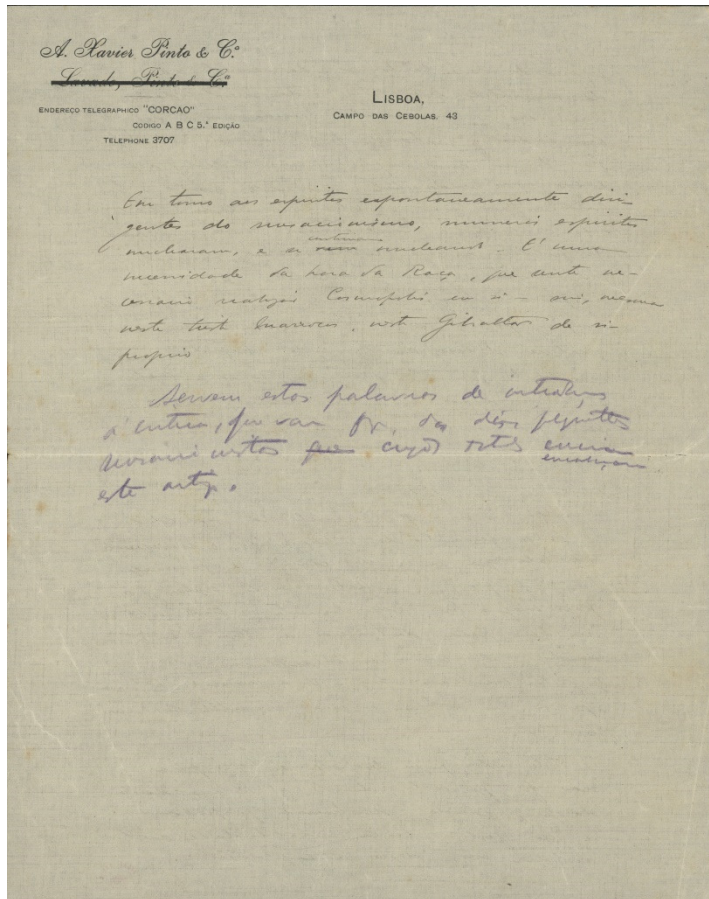 A. Xavier Pinto & C.ª
Lavado, Pinto & C.ª
ENDEREÇO TELEGRAPHICO "CORCAO"
CODIGO A B C 5.ª EDIÇÃO
TELEPHONE 3707
LISBOA,
CAMPO DAS CEBOLAS, 43
Em torno aos espiritos espontaneamente diri-
gentes do sensacionismo, numerosos espiritos
nuclearam, e se continuam nucleando. É uma
necessidade da hora da Raça, que sente ne-
cessario realizar Cosmopolis em si-
neste triste Marrocos, neste Gibraltar de si-
proprio
Servem estas palavras de introducção
á critica, que vae
sensacionistas que cujos
este artigo.